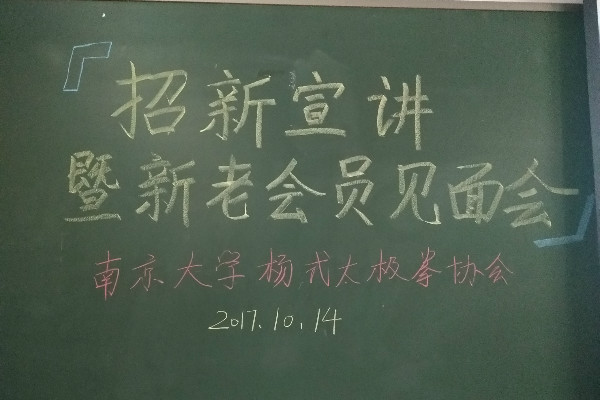 『招新宣讲
暨新老会员见面会』
南京大学杨式太极拳协会
2017.10.14